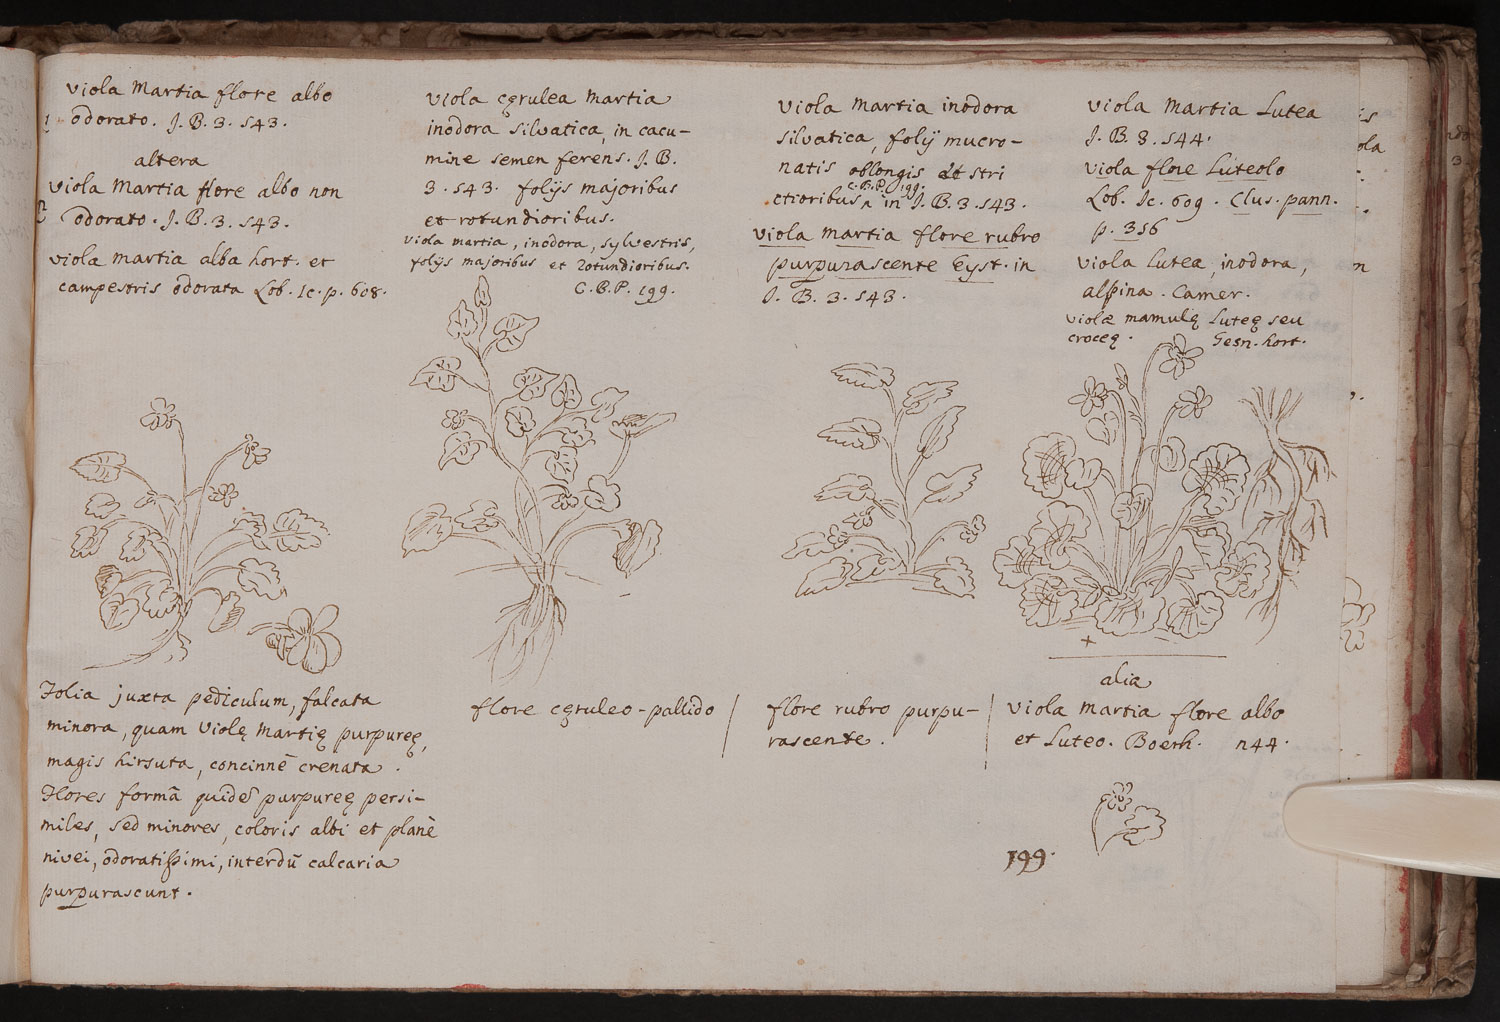 viola Martia flore albo
odorato. J. B. 3. 543.
altera
viola Martia flore albo non
odorato. J. B. 3. 543.
viola martia alba hort. et
campestris odorata Lob. Ic. p. 608.
viola cęrulea Martia
inodora silvatica, in cacu-
mine semen ferens. J. B.
3. 543. folijs majoribus
et rotundioribus.
viola martia, inodora, sylvestris,
folijs majoribus et rotundioribus.
C. B. P. 199.
viola martia inodora
silvatica, folij mucro-
natis oblongis et stri
C. B. P. 199.
ctioribus ^ in J. B. 3. 543.
viola martia flore rubro
purpurascente Eyst. in
J. B. 3. 543.
viola martia Lutea
J. B. 3. 544.
viola flore Luteolo
Lob. Ic. 609. Clus. pann.
p. 356
viola Lutea, inodora,
alpina. Camer.
violæ mamulę Luteę seu
croceę. Gesn. hort.
Folia juxta pediculum, falcata
minora, quam violę Martię purpureę,
magis hirsuta, concinnē crenata.
Flores formā quidē purpureę persi-
miles, sed minores, coloris albi et planē
nivei, odoratissimi, interdū calcaria
purpurascunt.
flore cęruleo-pallido
flore rubro purpu-
rascente.
+
alia
viola martia flore albo
et Luteo. Boerh. n44.
199.